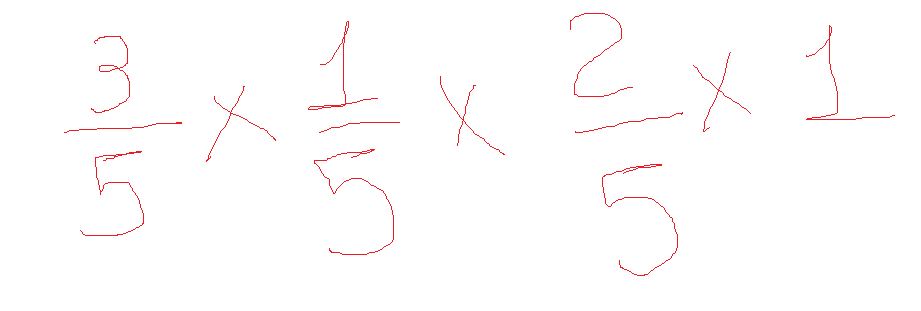 3/5 × 1/5 × 2/5 × 1